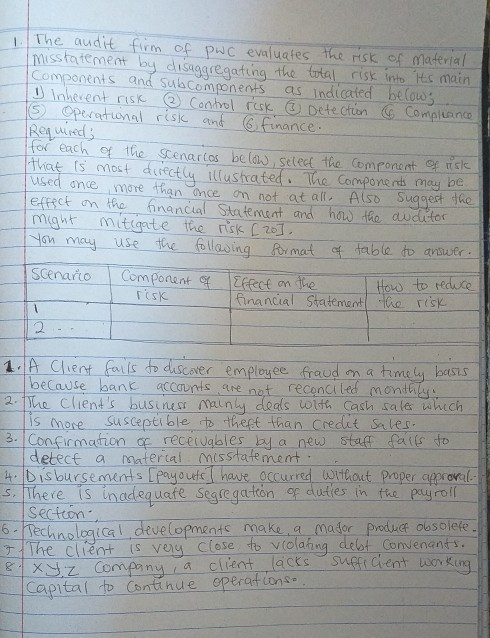 1. The audit firm of PWC evaluates the risk of material
misstatement by disaggregating the total risk into its main
components and subcomponents as indicated below;
① Inherent risk ② Control risk ③ Detection ④ Compliance
⑤ Operational risk and ⑥ finance.
Required;
for each of the scenarios below, select the component of risk
that is most directly illustrated. The components may be
used once, more than once or not at all. Also suggest the
effect on the financial statement and how the auditor
might mitigate the risk [20].
You may use the following format of table to answer.
Scenario Component of risk Effect on the financial Statement How to reduce the risk
1
2 . .
1. A Client fails to discover employee fraud on a timely basis
because bank accounts are not reconciled monthly.
2. The client's business mainly deals with cash sales which
is more susceptible to theft than credit sales.
3. Confirmation of receivables by a new staff fails to
detect a material misstatement.
4. Disbursements [payouts] have occurred without proper approval.
5. There is inadequate segregation of duties in the payroll
section.
6. Technological developments make a major product obsolete.
7. The client is very close to violating debt convenants.
8. XYZ Company, a client, lacks sufficient working
capital to continue operations.